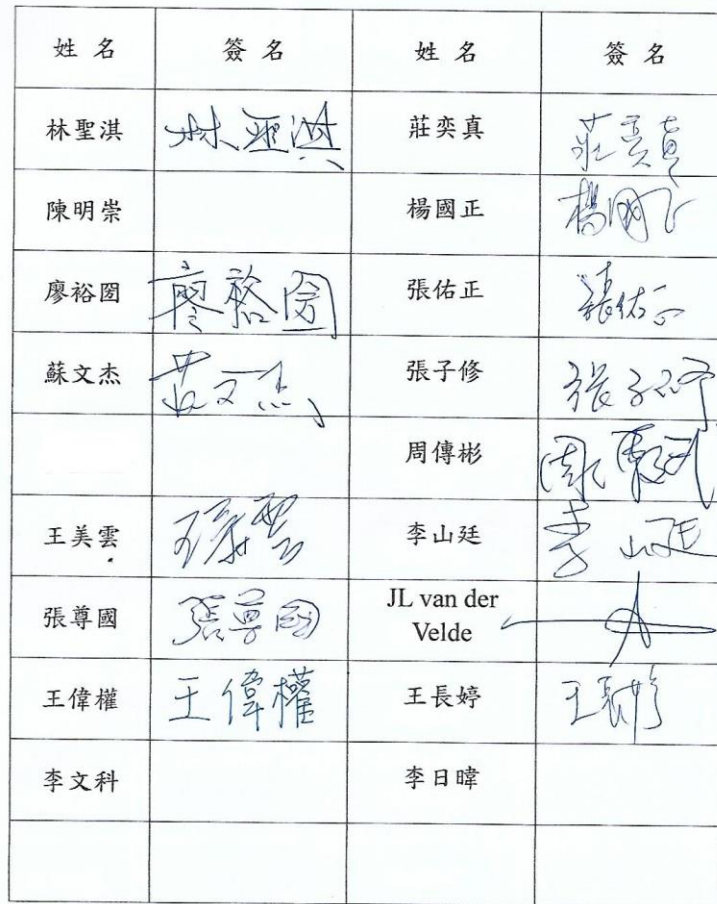 姓名 簽名 姓名 簽名
林聖淇 林聖淇 莊奕真 莊奕真
陳明崇 楊國正 楊國正
廖裕圀 廖裕圀 張佑正 張佑正
蘇文杰 苏文杰 張子修 張子修
周傳彬 周傳彬
王美雲 王美雲 李山廷 李山廷
張尊國 張尊國 JL van der
Velde
王偉權 王偉權 王長婷 王長婷
李文科 李日暐